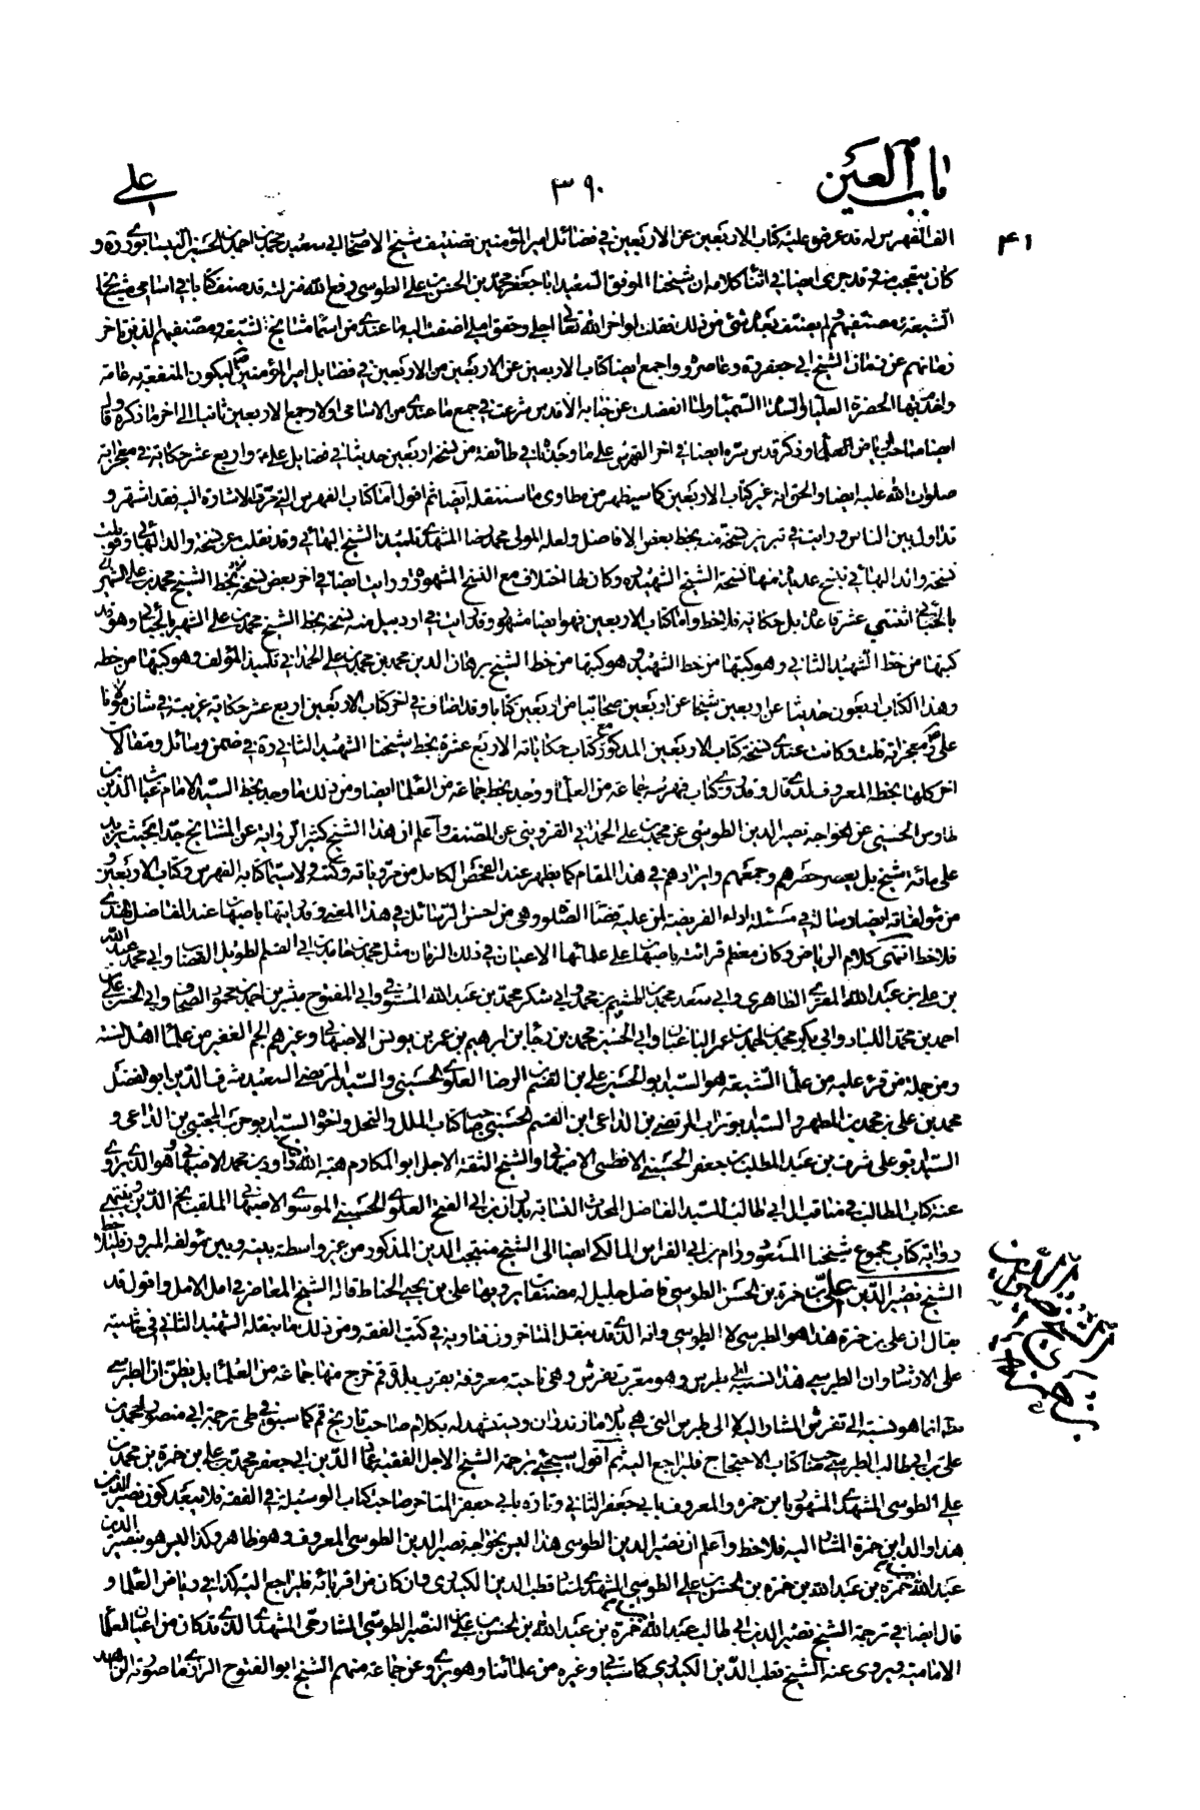 باب العين
٣٩٠
علي
٤١
الف الفهرس له قد عرض عليه كتاب الاربعين عن الاربعين في فضائل امير المؤمنين تصنيف شيخ الاصحاب ابي سعيد محمد بن احمد بن الحسين النيسابوري ره و
كان يتعجب منه وقد جرى ايضا في اثناء كلامه ان شيخنا الموفق السعيد ابا جعفر محمد بن الحسن بن علي الطوسي رفع الله منزلته قد صنف كتابا في اسامي مشايخ
الشيعة ومصنفيهم ولم يصنف بعده شئ من ذلك فقلت لو اخر الله تعالى اجلي وحقق املي اضفت اليه ما عندي من اسماء مشايخ الشيعة ومصنفيهم الذين تاخر
زمانهم عن زمان الشيخ ابي جعفر ره وعاصروه واجمع ايضا كتاب الاربعين عن الاربعين من الاربعين في فضايل امير المؤمنين ليكون المنفعة به عامة
واخدم بهما الحضرة العليا والسدة السمياء ولما انفصلت عن جنابه الاقدس شرعت في جمع ما عندي من الاسامي اولا وجمع الاربعين ثانيا الى اخر ما ذكره وقال
ايضا صاحب رياض العلماء وذكر قدس سره ايضا في اخر الفهرس على ما وجدناه في طائفة من نسخه اربعين حديثا في فضايل علي ع واربع عشر حكاية في معجزاته
صلوات الله عليه ايضا والحق انه غير كتاب الاربعين كما سيظهر من مطاوي ما سننقله ايضا ثم اقول اما كتاب الفهرس الذي مرت الاشارة اليه فقد اشتهر و
تداول بين الناس ورايت في تبريز نسخة منه بخط بعض الافاضل ولعله المولى محمد رضا المشهدي تلميذ الشيخ البهائي وقد نقلت عن نسخة والد البهائي وقوبلت
نسخة والد البهائي بنسخ عديدة منها نسخة الشيخ الشهيد ره وكان لها اختلاف مع النسخ المشهورة ورايت ايضا في اخر بعض نسخه بخط الشيخ محمد بن علي الشهير
بالجباعي اثنتي عشر فائدة بل حكاية فلاحظ واما كتاب الاربعين فهو ايضا مشهور وقد رايت في اردبيل منه نسخة بخط الشيخ محمد بن علي الشهير بالجباعي وهو قد
كتبها من خط الشهيد الثاني وهو كتبها من خط الشهيد وهو كتبها من خط الشيخ برهان الدين محمد بن محمد بن علي الحمداني تلميذ المؤلف وهو كتبها من خطه
وهذا الكتاب اربعون حديثا عن اربعين شيخا عن اربعين صحابيا من اربعين كتابا وقد اضاف في اخر كتاب الاربعين اربع عشر حكاية غريبة في شان مولانا
علي وكر معجزاته قلت وكانت عندي نسخة كتاب الاربعين المذكور مع كتاب حكاياته الاربع عشرة بخط شيخنا الشهيد الثاني ره في ضمن وسائل ومقالات
اخر كلها بخط المعروف لدي قال وقد روى كتاب فهرسه جماعة من العلماء ووجد بخط جماعة من العلماء ايضا ومن ذلك ما وجد بخط السيد الامام غياث الدين بن
طاوس الحسيني عن الخواجه نصير الدين الطوسي عن محمد بن علي الحمداني القزويني عن المصنف واعلم ان هذا الشيخ كثير الرواية عن المشايخ جدا بحيث يزيد
على مائة شيخ بل يعسر حصرهم وجمعهم وايرادهم في هذا المقام كما يظهر عند الفحص الكامل من مروياته وكتبه ولا سيما كتابه الفهرس وكتاب الاربعين و
من مؤلفاته ايضا رسالة في مسئلة اداء الفريضة لمن عليه قضاء الصلوة وهي من احسن الرسائل في هذا المعنى وقد رايتها باصبهان عند الفاضل الهندي
فلاحظ انتهى كلام الرياض وكان معظم قرائته باصبهان على علمائها الاعيان في ذلك الزمان مثل محمد بن حامد بن ابي القسم الطويل القصاب وابي محمد عبد الله
بن علي بن عبد الله المقري الطاهري وابي سعد محمد بن الهيثم بن محمد وابي شكر محمد بن عبد الله المستوفي وابي الفتوح مبشر بن احمد بن محمود الصحاف وابي الحسن علي بن
احمد بن محمد اللباد وابي بكر محمد بن احمد بن عمر الباغبان وابي الحسين محمد بن رجا بن ابراهيم بن عمر بن يونس الاصبهاني وغيرهم الجم الغفير من علماء اهل السنة
ومن جملة من قرء عليه من علماء الشيعة هو السيد ابو الحسين علي بن القسم الرضا العلوي الحسيني والسيد المرتضى السعيد شرف الدين ابو الفضل
محمد بن علي بن محمد بن المطهر والسيد ابو تراب المرتضى بن الداعي ابن القسم الحسيني صاحب كتاب الملل والنحل واخوه السيد ابو حرب المجتبى بن الداعي و
السيد ابو علي شرف بن عبد المطلب بن جعفر الحسيني الافطسي الاصبهاني والشيخ الثقة الاجل ابو المكارم هبة الله بن داود بن محمد الاصبهاني وهو الذي يروي
عنه كتاب المطالب في مناقب ال ابي طالب للسيد الفاضل المحدث النسابة بن ابي الفتح العلوي الحسيني الموسوي الاصبهاني الملقب بنجم الدين وينتهى
رواية كتاب مجموع شيخنا المسعود ورام بن ابي الفراس المالكي ايضا الى الشيخ منتجب الدين المذكور من غير واسطة بينه وبين مؤلفه المبرور فليلاحظ
الشيخ نصير الدين علي بن حمزة بن الحسن الطوسي فاضل جليل له مصنفات يرويها علي بن يحيى الحناط قاله الشيخ المعاصر في امل الامل واقول قد
يقال ان علي بن حمزة هذا هو الطبرسي لا الطوسي وانه الذي قد ينقل المتاخرون فتاويه في كتب الفقه ومن ذلك ما ينقله الشهيد الثاني في حاشيته
على الارشاد وان الطبرسي هذا نسبة الى طبرس وهو معرب تفرش وهي ناحية معروفة بقرب بلدة قم خرج منها جماعة من العلماء بل يظن ان الطبرسي
مطلقا انما هو نسبة الى تفرش المشار اليه لا الى طبرس التي هي بلاد مازندران ويستشهد له بكلام صاحب تاريخ قم كما سبق في طي ترجمة ابي منصور احمد بن
علي بن ابي طالب الطبرسي صاحب كتاب الاحتجاج فليراجع اليه ثم اقول سيجئ ترجمة الشيخ الاجل الفقيه عماد الدين ابي جعفر محمد بن علي بن حمزة بن محمد بن
علي الطوسي المشهدي المشهور بابن حمزه والمعروف بابي جعفر الثاني وتارة بابي جعفر المتاخر صاحب كتاب الوسيلة في الفقه فلا يبعد كون نصير الدين
هذا والد ابن حمزة المشار اليه فلاحظ واعلم ان نصير الدين الطوسي هذا ليس بخواجه نصير الدين الطوسي المعروف وهو ظاهر وكذا ليس هو بنصير الدين
عبد الله بن حمزة بن عبد الله بن حمزة بن الحسن بن علي الطوسي المشهدي استاد قطب الدين الكيدري وان كان من اقربائه فليراجع اليه كذا في رياض العلماء و
قال ايضا في ترجمة الشيخ نصير الدين ابي طالب عبد الله بن حمزة بن عبد الله بن الحسن بن علي بن النصير الطوسي الشارحي المشهدي الذي قد كان من اعيان العلماء
الامامية ويروى عنه الشيخ قطب الدين الكيدري كما سياتي وغيره من علمائنا وهو يروي عن جماعة منهم الشيخ ابو الفتوح الرازي ما صورته الذي
الشيخ نصير الدين
علي بن حمزة
بن حسن